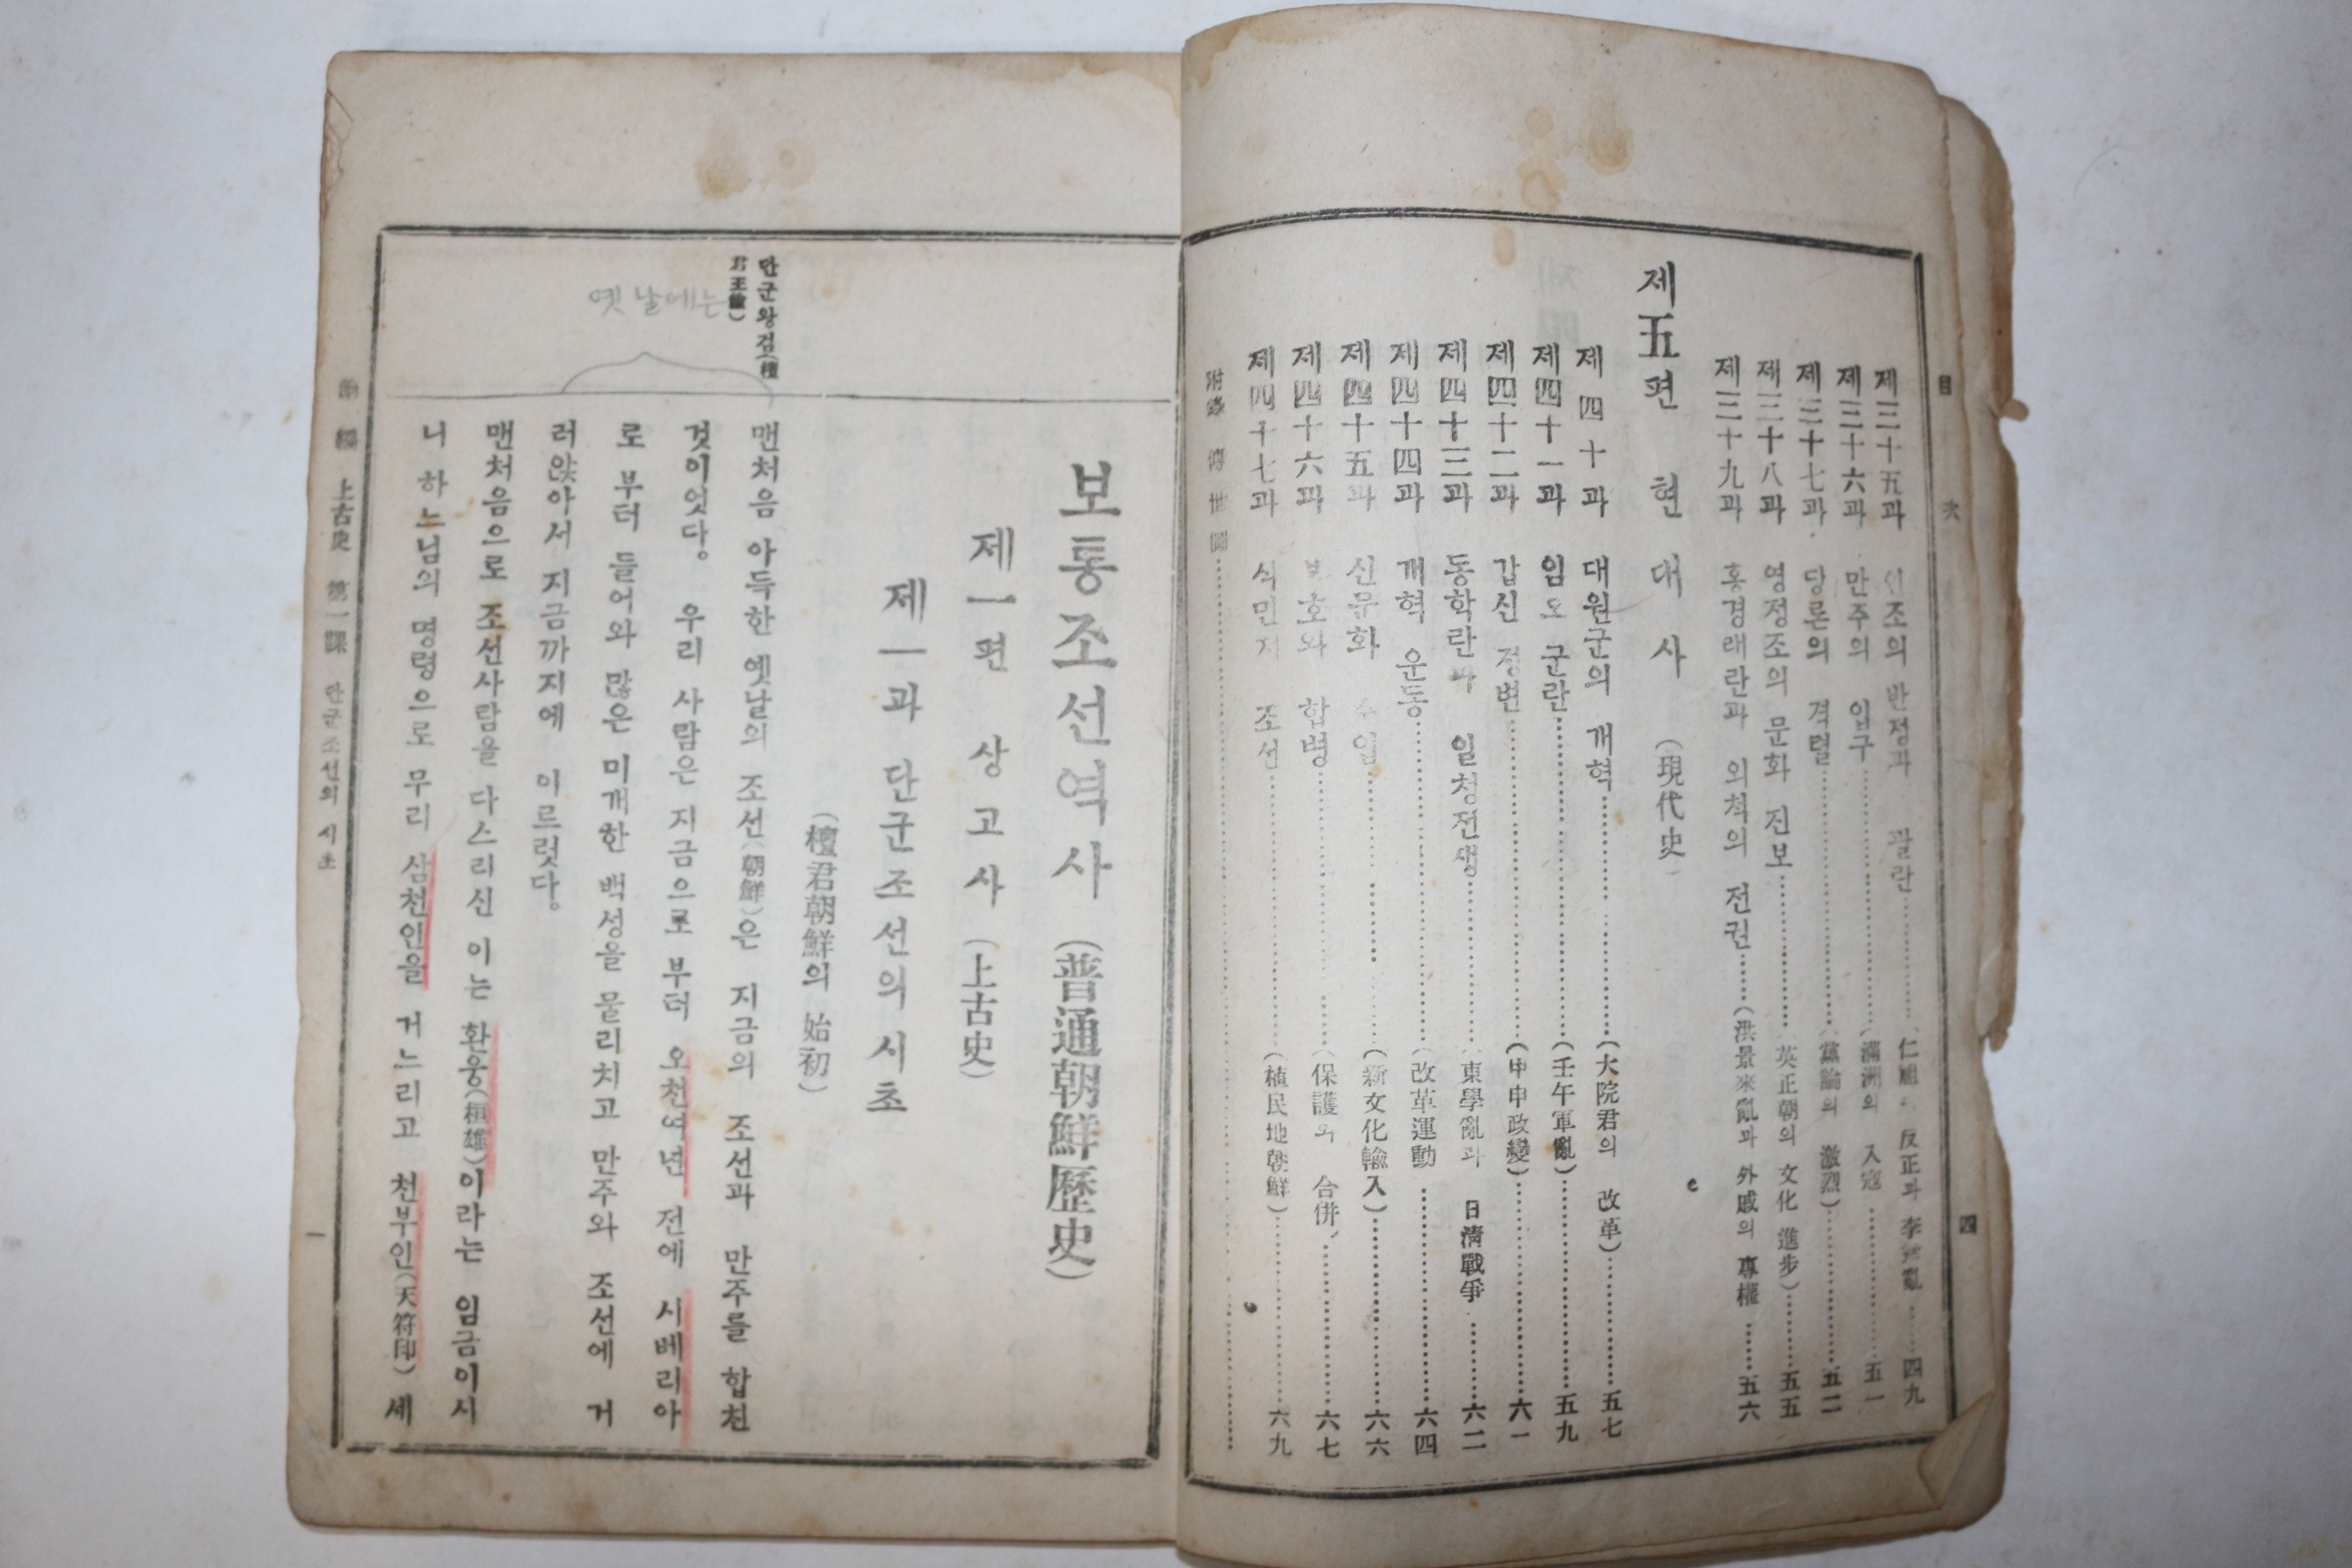 目 次
四
제三十五과 인조의 반정과 괄란……(仁祖의 反正과 李适亂……四九
제三十六과 만주의 입구……(滿洲의 入寇……五一
제三十七과 당론의 격렬……(黨論의 激烈)……五二
제三十八과 영정조의 문화 진보……(英正朝의 文化 進步)……五五
제三十九과 홍경래란과 외척의 전권……(洪景來亂과 外戚의 專權……五六
제五편 현대사 (現代史)
제四十과 대원군의 개혁……(大院君의 改革)……五七
제四十一과 임오 군란……(壬午軍亂)……五九
제四十二과 갑신 정변……(甲申政變)……六一
제四十三과 동학란과 일청전쟁……(東學亂과 日淸戰爭……六二
제四十四과 개혁 운동……(改革運動……六四
제四十五과 신문화 수입……(新文化輸入)……六六
제四十六과 보호와 합병……(保護와 合併……六七
제四十七과 식민지 조선……(植民地朝鮮)……六九
附錄 傳世圖……
보통조선역사 (普通朝鮮歷史)
제一편 상고사 (上古史)
제一과 단군조선의 시초
(檀君朝鮮의 始初)
단군왕검(檀
君王儉)
옛날에는
맨처음 아득한 옛날의 조선(朝鮮)은 지금의 조선과 만주를 합친
것이엇다。 우리 사람은 지금으로 부터 오천여년 전에 시베리아
로 부터 들어와 많은 미개한 백성을 물리치고 만주와 조선에 거
러앉아서 지금까지에 이르럿다。
맨처음으로 조선사람을 다스리신 이는 환웅(桓雄)이라는 임금이시
니 하느님의 명령으로 무리 삼천인을 거느리고 천부인(天符印) 세
上古史 第一課 단군조선의 시초
一